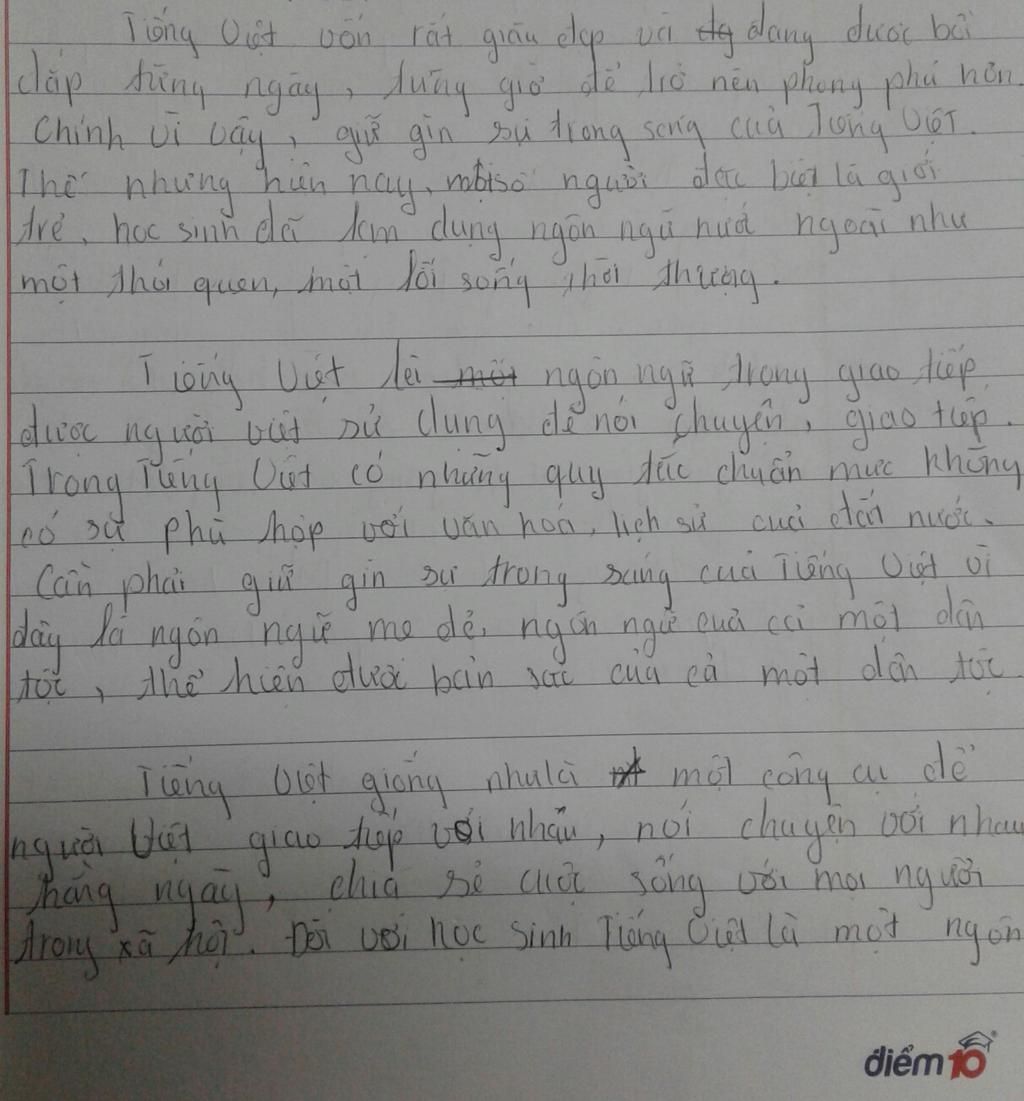 Tiếng Việt vốn rất giàu đẹp và đang được bồi
đắp từng ngày, từng giờ để trở nên phong phú hơn.
Chính vì vậy, giữ gìn sự trong sáng của Tiếng Việt.
Thế nhưng hiện nay, một số người đặc biệt là giới
trẻ, học sinh đã lạm dụng ngôn ngữ nước ngoài như
một thói quen, một lối sống thời thượng.
Tiếng Việt là ngôn ngữ trong giao tiếp
được người việt sử dụng để nói chuyện, giao tiếp.
Trong Tiếng Việt có những quy tắc chuẩn mực không
có sự phù hợp với văn hóa, lịch sử của đất nước.
Cần phải giữ gìn sự trong sáng của Tiếng Việt vì
đây là ngôn ngữ mẹ đẻ, ngôn ngữ của cả một dân
tộc, thể hiện được bản sắc của cả một dân tộc.
Tiếng Việt giống như là một công cụ để
người Việt giao tiếp với nhau, nói chuyện với nhau
hằng ngày, chia sẻ cuộc sống với mọi người
trong xã hội. Đối với học sinh Tiếng Việt là một ngôn
điểm10